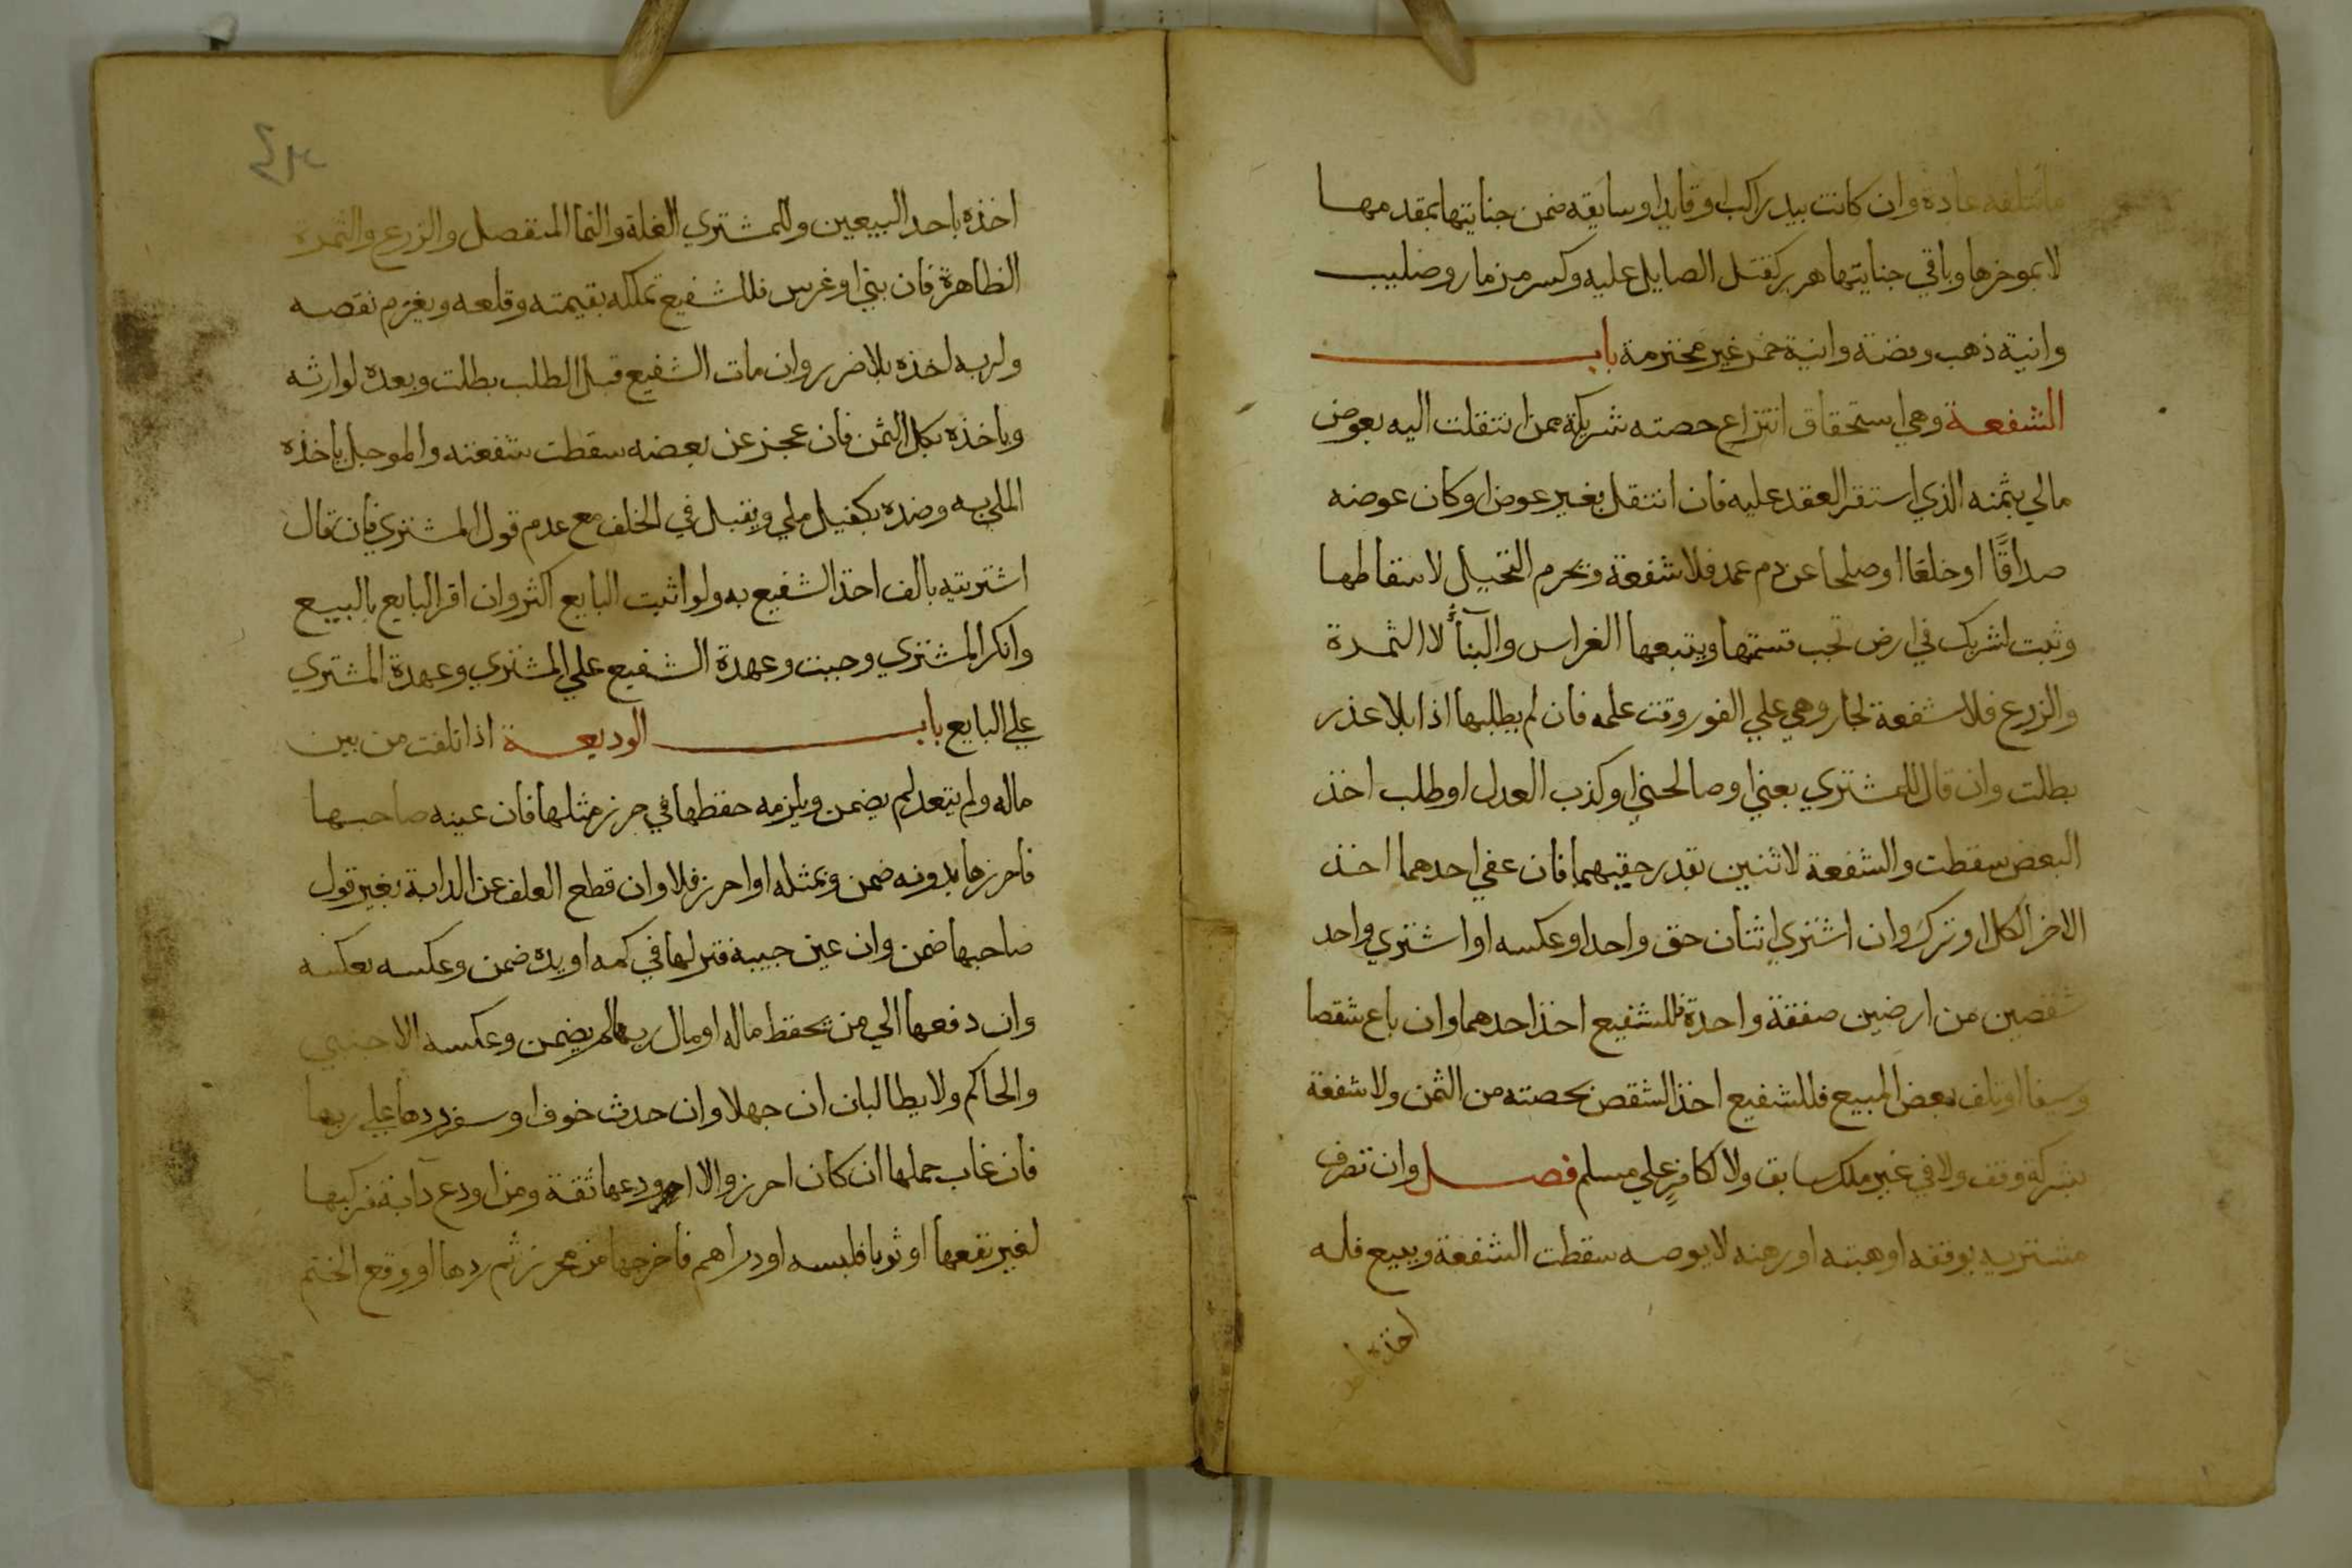 ما تتلفه عادة وان كانت بيد راكب او قايد او سايقه ضمن جنايتها بمقدمها
لا بموخرها وباقي جنايتها هدر كقتل الصايل عليه وكسر مزمار وصليب
وانية ذهب وفضة وانية خمر غير محترمة باب
الشفعة وهي استحقاق انتزاع حصته شريكة ممن انتقلت اليه بعوض
مالي بثمنه الذي استقر العقد عليه فان انتقل بغير عوض او كان عوضه
صداقًا او خلعا او صلحا عن دم عمد فلا شفعة ويحرم التحيل لاسقاطها
وثبت لشريك في ارض تجب قسمتها ويتبعها الغراس والبنآء لا الثمرة
والزرع فلا شفعة لجار وهي علي الفور وقت علمه فان لم يطلبها اذا بلا عذر
بطلت وان قال للمشتري بعني او صالحني او كذب العدل او طلب اخذ
البعض سقطت والشفعة لاثنين بقدر حقيهما فان عفي احدهما اخذ
الاخر الكل او ترك وان اشتري اثنان حق واحد او عكسه او اشتري واحد
شقصين من ارضين صفقة واحدة فللشفيع اخذ احدهما وان باع شقصا
وسيفا او تلف بعض المبيع فللشفيع اخذ الشقص بحصته من الثمن ولا شفعة
بشركه وقف ولا في غير ملك سابق ولا لكافرٍ علي مسلم فصل وان تصرف
مشتريه بوقفه او هبته او رهنه لا بوصه سقطت الشفعة وببيع فله
اخذه باحد
اخذه باحد البيعين وللمشتري الغلة والنما المنفصل والزرع والثمرة
الظاهرة فان بني او غرس فللشفيع تملكه بقيمته وقلعه ويغرم نقصه
ولربه اخذه بلا ضرر وان مات الشفيع قبل الطلب بطلت وبعده لوارثه
وياخذه بكل الثمن فان عجز عن بعضه سقطت شفعته والموجل ياخذه
الملي به وضده بكفيل ملي ويقبل في الخلف مع عدم قول المشتري فان قال
اشتريته بالف اخذ الشفيع به ولو اثبت البايع اكثر وان اقر البايع بالبيع
وانكر المشتري وجبت وعهدة الشفيع علي المشتري وعهدة المشتري
علي البايع باب الوديعة اذا تلفت من بين
ماله ولم يتعد لم يضمن ويلزمه حفظها في حرز مثلها فان عينه صاحبها
فاحرزها بدونه ضمن وبمثله او احرز فلا وان قطع العلف عن الدابة بغير قول
صاحبها ضمن وان عين جيبه فتركها في كمه او يده ضمن وعكسه بعكسه
وان دفعها الي من يحفظ ماله او مال ربها لم يضمن وعكسه الاجنبي
والحاكم ولا يطالبان ان جهلا وان حدث خوف او سفر ردها علي ربها
فان غاب حملها ان كان احرز والا اودعها ثقة ومن اودع دآبة فركبها
لغير نفعها او ثوبا فلبسه او دراهم فاخرجها من محرز ثم ردها او وقع الختم